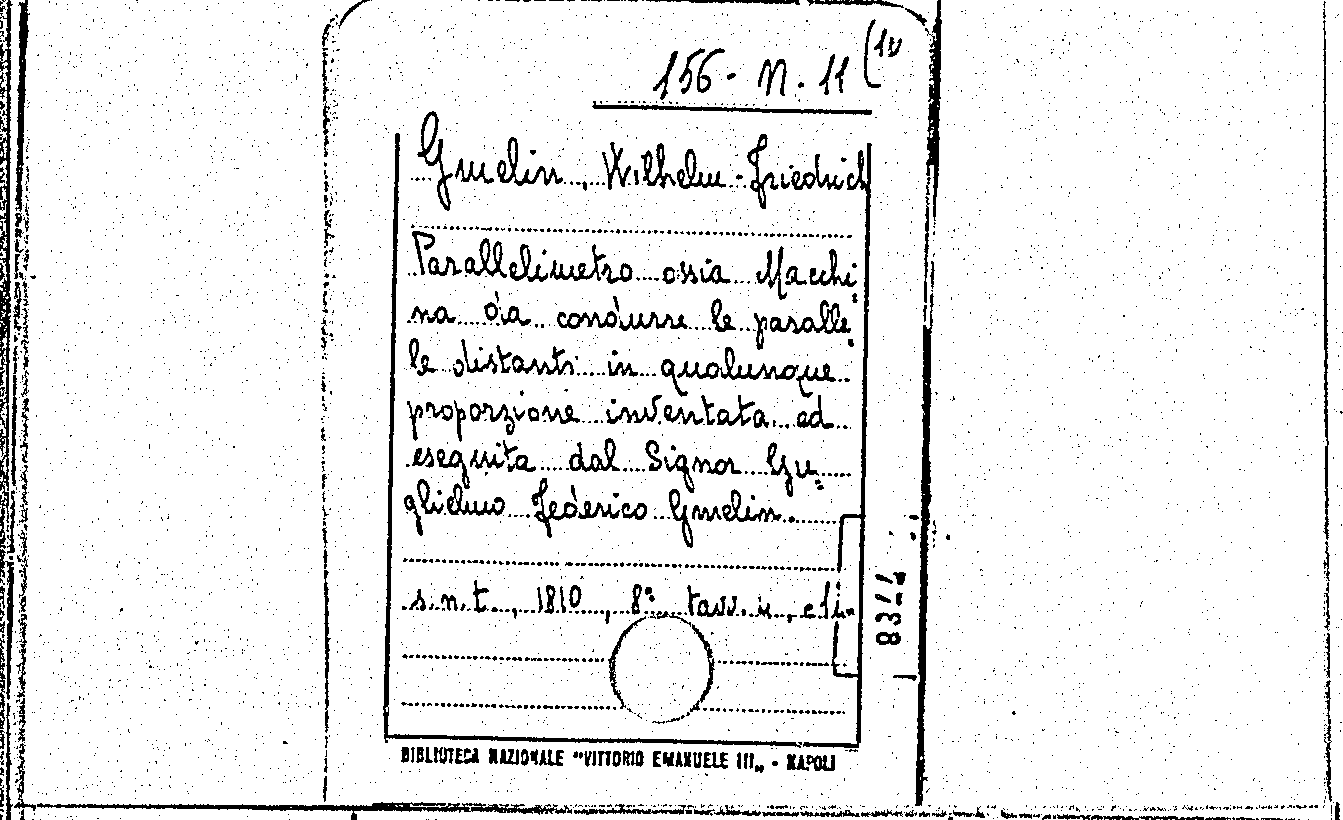 156 - N. 11 (10
Gmelin, Wilhelm-Friedrich
Parallelimetro ossia Macchi=
na da condurre le paralle=
le distanti in qualunque
proporzione inventata ed
eseguita dal Signor Gu=
glielmo Federico Gmelin.
s.n.t., 1810, 8° tavv.
8322
BIBLIOTECA NAZIONALE "VITTORIO EMANUELE III„ - NAPOLI